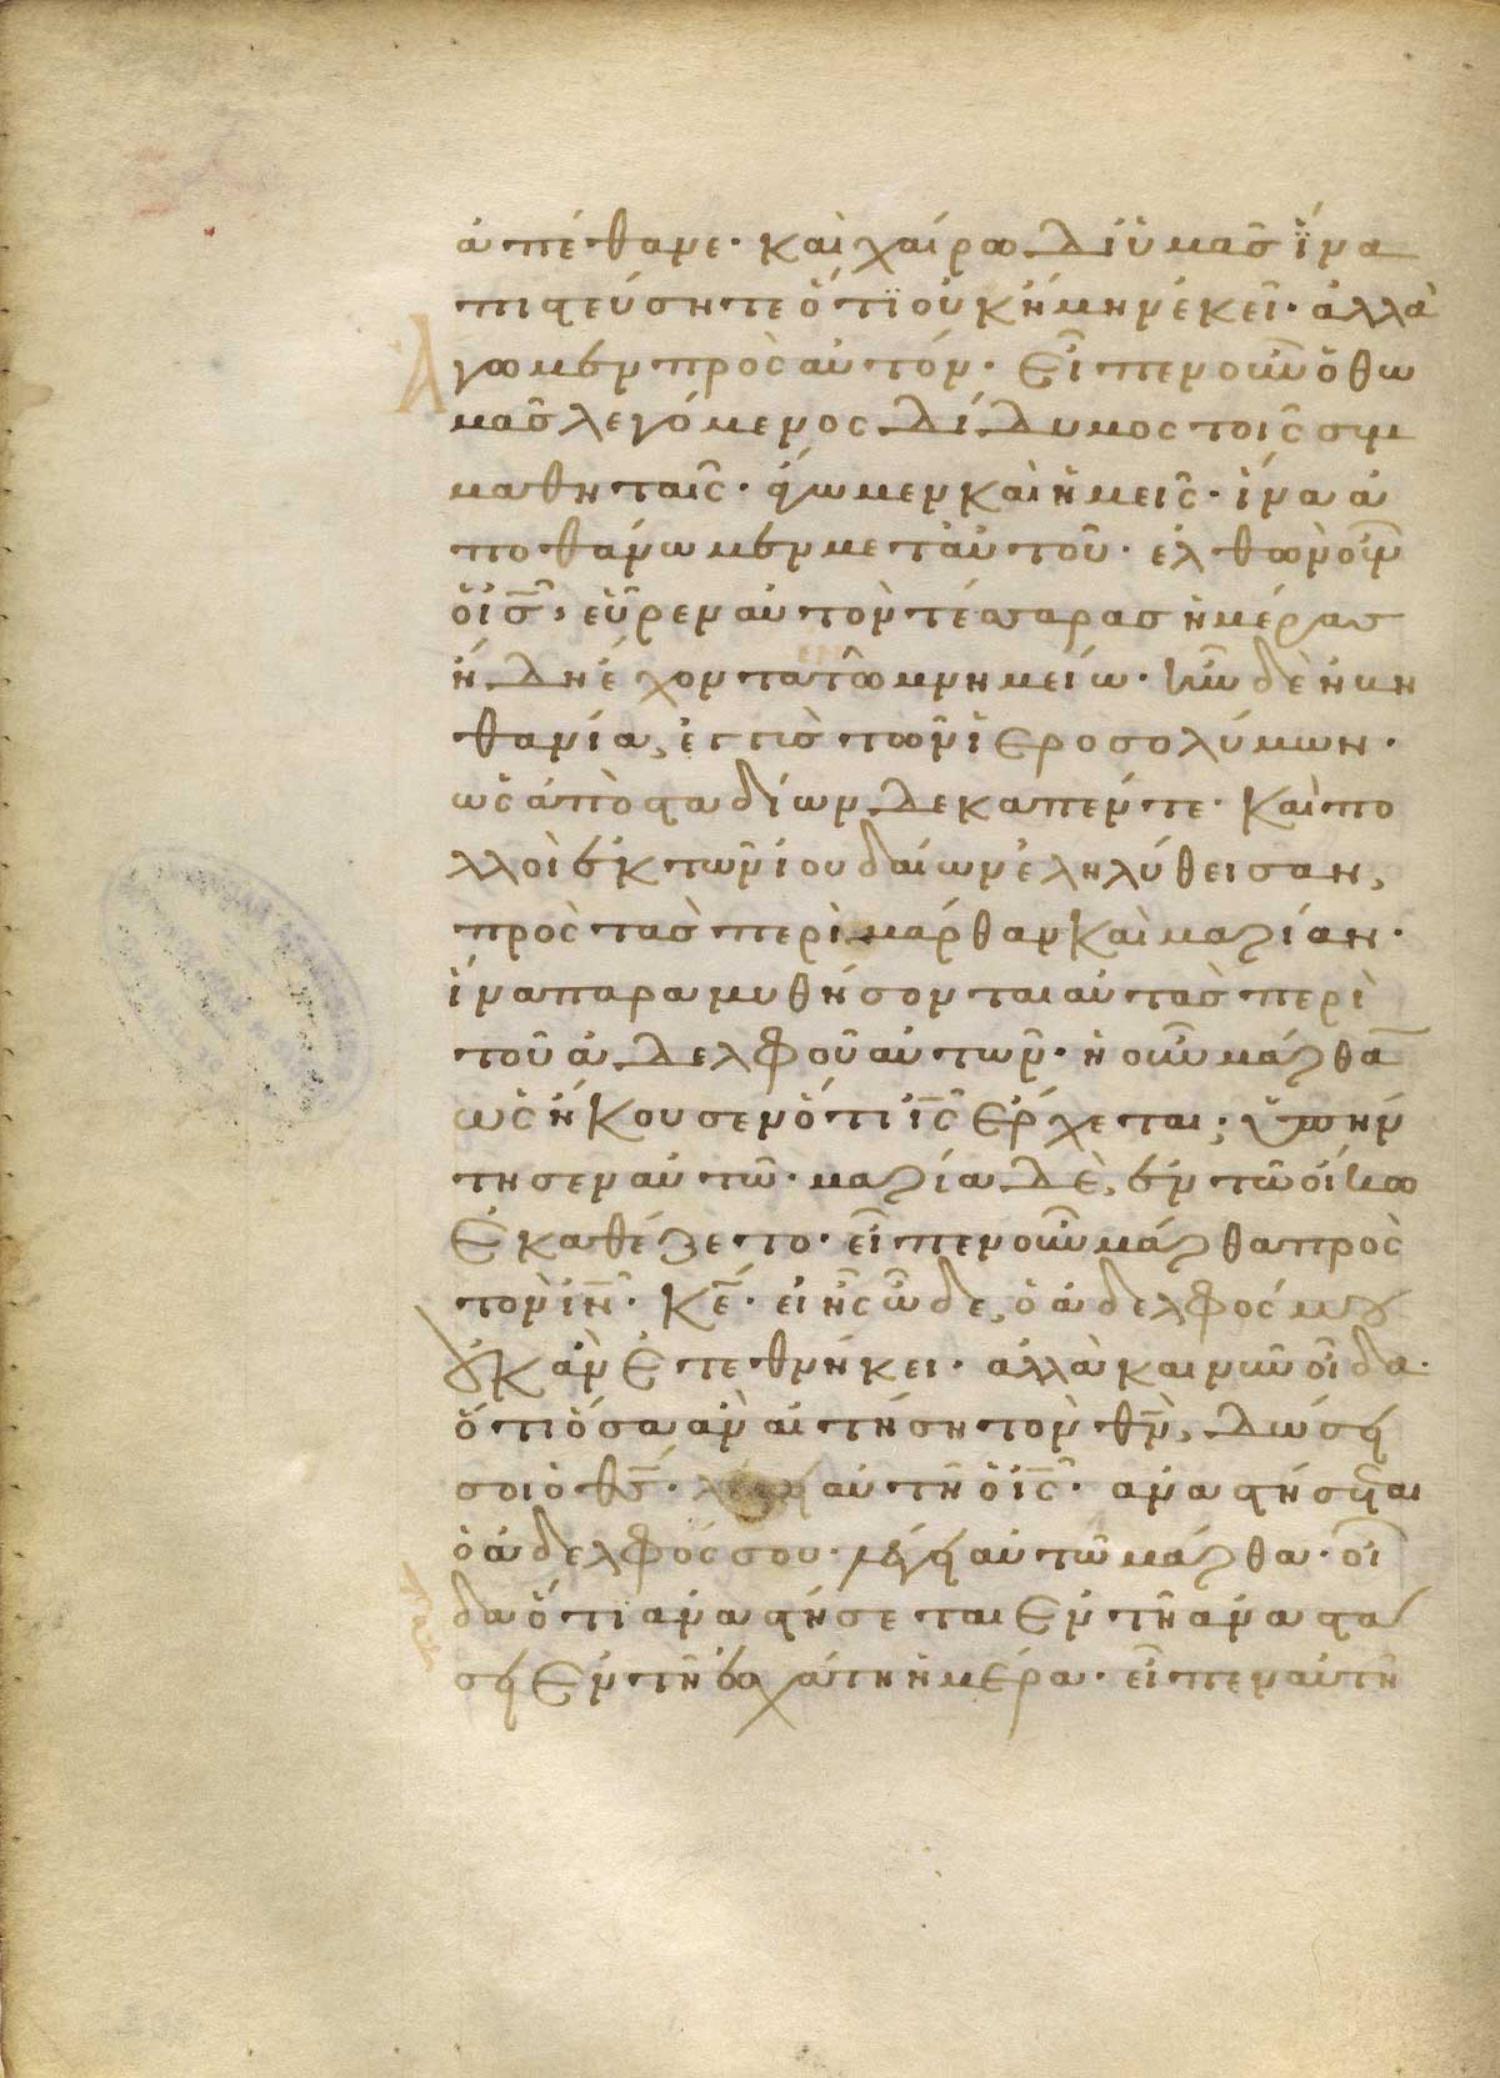 ἀπέθανε· καὶ χαίρω δι ὑμᾶσ ἵνα
πιστεύσητε ὅτι οὐκ ἤμην ἐκεῖ· ἀλλὰ
γωμεν πρὸς αὐτόν· Εἶπεν οὖν ὁ θω
μᾶσ λεγόμενος δίδυμος τοῖς συμ
μαθηταῖς· ἄγωμεν καὶ ἡμεῖς· ἵνα ἀ
ποθάνωμεν μετ αὐτοῦ· ἐλθὼν οὖν
ὁ ἰσ̅, εὗρεν αὐτὸν τέσσαρασ ἡμέρασ
ἤδη ἔχοντα τῶ μνημείω· ἦν δὲ ἡ βη
θανία, ἐγγὺσ τῶν ἱεροσολύμων·
ὡς ἀπὸ σταδίων δεκαπέντε· Καὶ πο
λλοὶ ἐκ τῶν ἰουδαίων ἐληλύθεισαν,
πρὸς τὰσ περὶ μάρθαν καὶ μαρίαν·
ἵνα παραμυθήσονται αὐτὰσ περὶ
τοῦ ἀδελφοῦ αὐτῶν· ἡ οὖν μάρθα
ὡς ἤκουσεν ὅτι ἰς̅ ἔρχεται, ὑπήν
τησεν αὐτῶ· μαρία δὲ, ἐν τῶ οἴκω
ἐκαθέζετο· εἶπεν οὖν μάρθα πρὸς
τὸν ἰν̅· κε̅· εἰ ἦς ὧδε, ὁ ἀδελφός μου
οὐκ ἂν ἐτεθνήκει· ἀλλὰ και νῦν οἶδα·
ὅτι ὅσα ἂν αἰτήση τὸν θν̅, δώσει
σοι ὁ θσ̅· λέγει αὐτῆ ὁ ἰς̅· ἀναστήσεται
ὁ ἀδελφός σου· λέγει αὐτῶ μάρθα· οἶ
δα ὅτι ἀναστήσεται ἐν τῆ ἀναστά
σει ἐν τῆ ἐσχάτη ἡμέρα· εἶπεν αὐτῆ